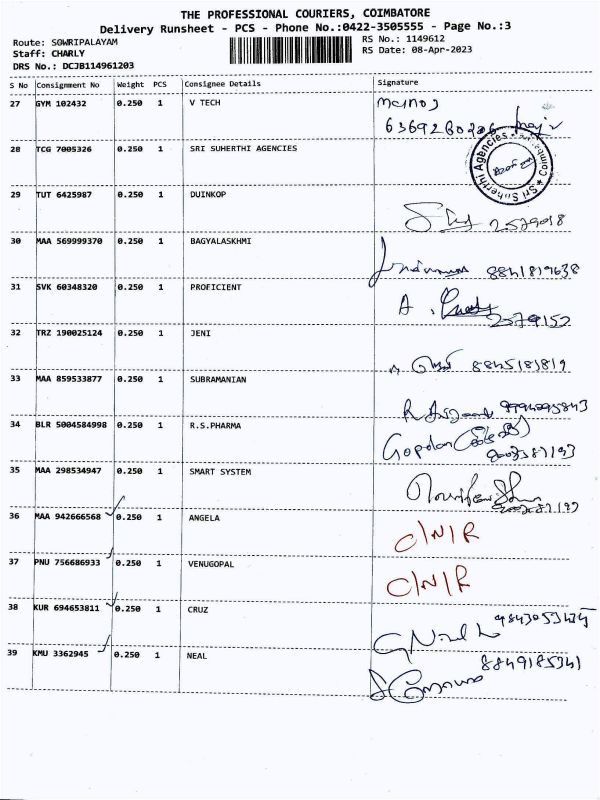 THE PROFESSIONAL COURIERS, COIMBATORE
Delivery Runsheet - PCS - Phone No.:0422-3505555 - Page No.:3
Route: SOWRIPALAYAM
Staff: CHARLY
DRS No.: DCJB114961203
RS No.: 1149612
RS Date: 08-Apr-2023
S No Consignment No Weight PCS Consignee Details Signature
27 GYM 102432 0.250 1 V TECH
28 TCG 7005326 0.250 1 SRI SUHERTHI AGENCIES
Sri Suherthi Agencies
29 TUT 6425987 0.250 1 DUINKOP
30 MAA 569999370 0.250 1 BAGYALASKHMI 8841819638
31 SVK 60348320 0.250 1 PROFICIENT 2579152
32 TRZ 190025124 0.250 1 JENI 8845183819
33 MAA 859533877 0.250 1 SUBRAMANIAN
34 BLR 5004584998 0.250 1 R.S.PHARMA Gopalan
35 MAA 298534947 0.250 1 SMART SYSTEM
36 MAA 942666568 0.250 1 ANGELA C/N/R
37 PNU 756686933 0.250 1 VENUGOPAL C/N/R
38 KUR 694653811 0.250 1 CRUZ
39 KMU 3362945 0.250 1 NEAL 8849185341